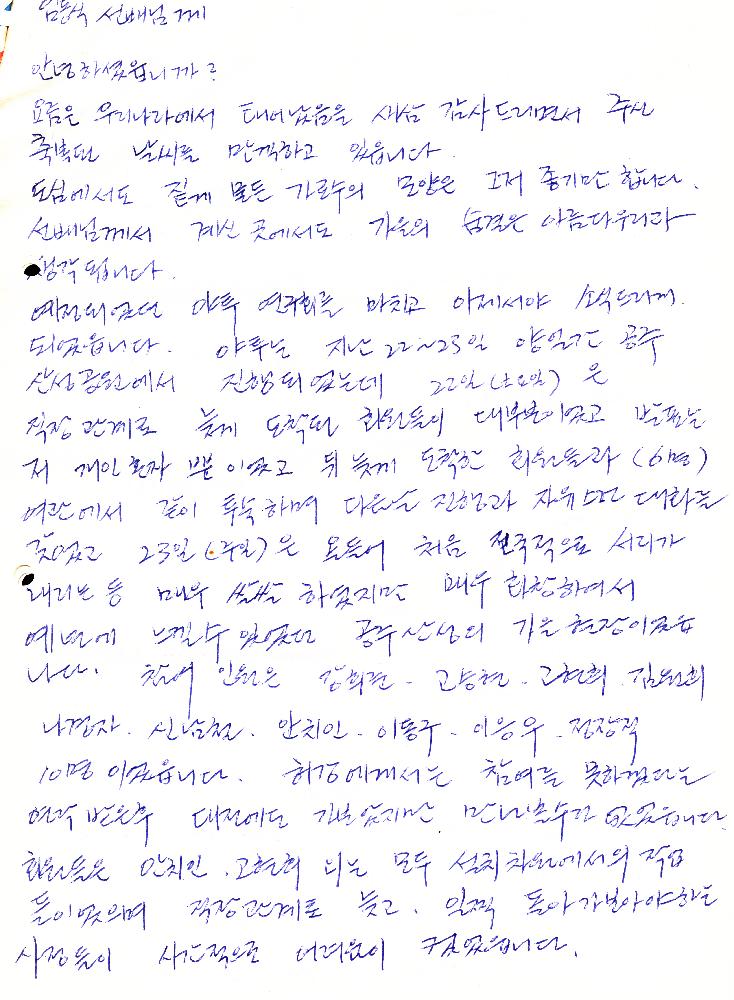 임동식 선배님께
안녕하셨읍니까?
요즘은 우리나라에서 태어났음을 새삼 감사드리면서 주신
축복된 날씨를 만끽하고 있읍니다.
도심에서도 짙게 물든 가로수의 모양은 그저 좋기만 합니다.
선배님께서 계신 곳에서도 가을의 숨결은 아름다우리라
생각됩니다.
예정되었던 야투 연구회를 마치고 이제서야 소식드리게
되었읍니다. 야투는 지난 22~23일 양일간 공주
산성공원에서 진행되었는데 22일(토요일)은
직장관계로 늦게 도착된 회원들이 대부분이었고 발표는
저 개인 혼자 뿐이었고 뒤 늦게 도착한 회원들과 (6명)
여관에서 같이 투숙하며 다음날 진행과 자유스런 대화를
갖었고 23일(주일)은 올들어 처음 전국적으로 서리가
내리는 등 매우 쌀쌀하였지만 매우 화창하여서
예년에 느낄수 있었던 공주산성의 가을 현장이었읍
니다. 참여 인원은 강희준. 고승현. 고현희. 김원희
나경자. 신남철. 안치인. 이동구. 이응우. 정장직
10명 이었읍니다. 허강에게서는 참여를 못하겠다는
연락 받은후 대전에도 가보았지만 만나볼수가 없었읍니다.
회원들은 안치인. 고현희 외는 모두 설치 차원에서의 작업
들이었으며 직장관계로 늦고. 일찍 돌아가보아야하는
사정들이 시간적으로 어려움이 컸었읍니다.